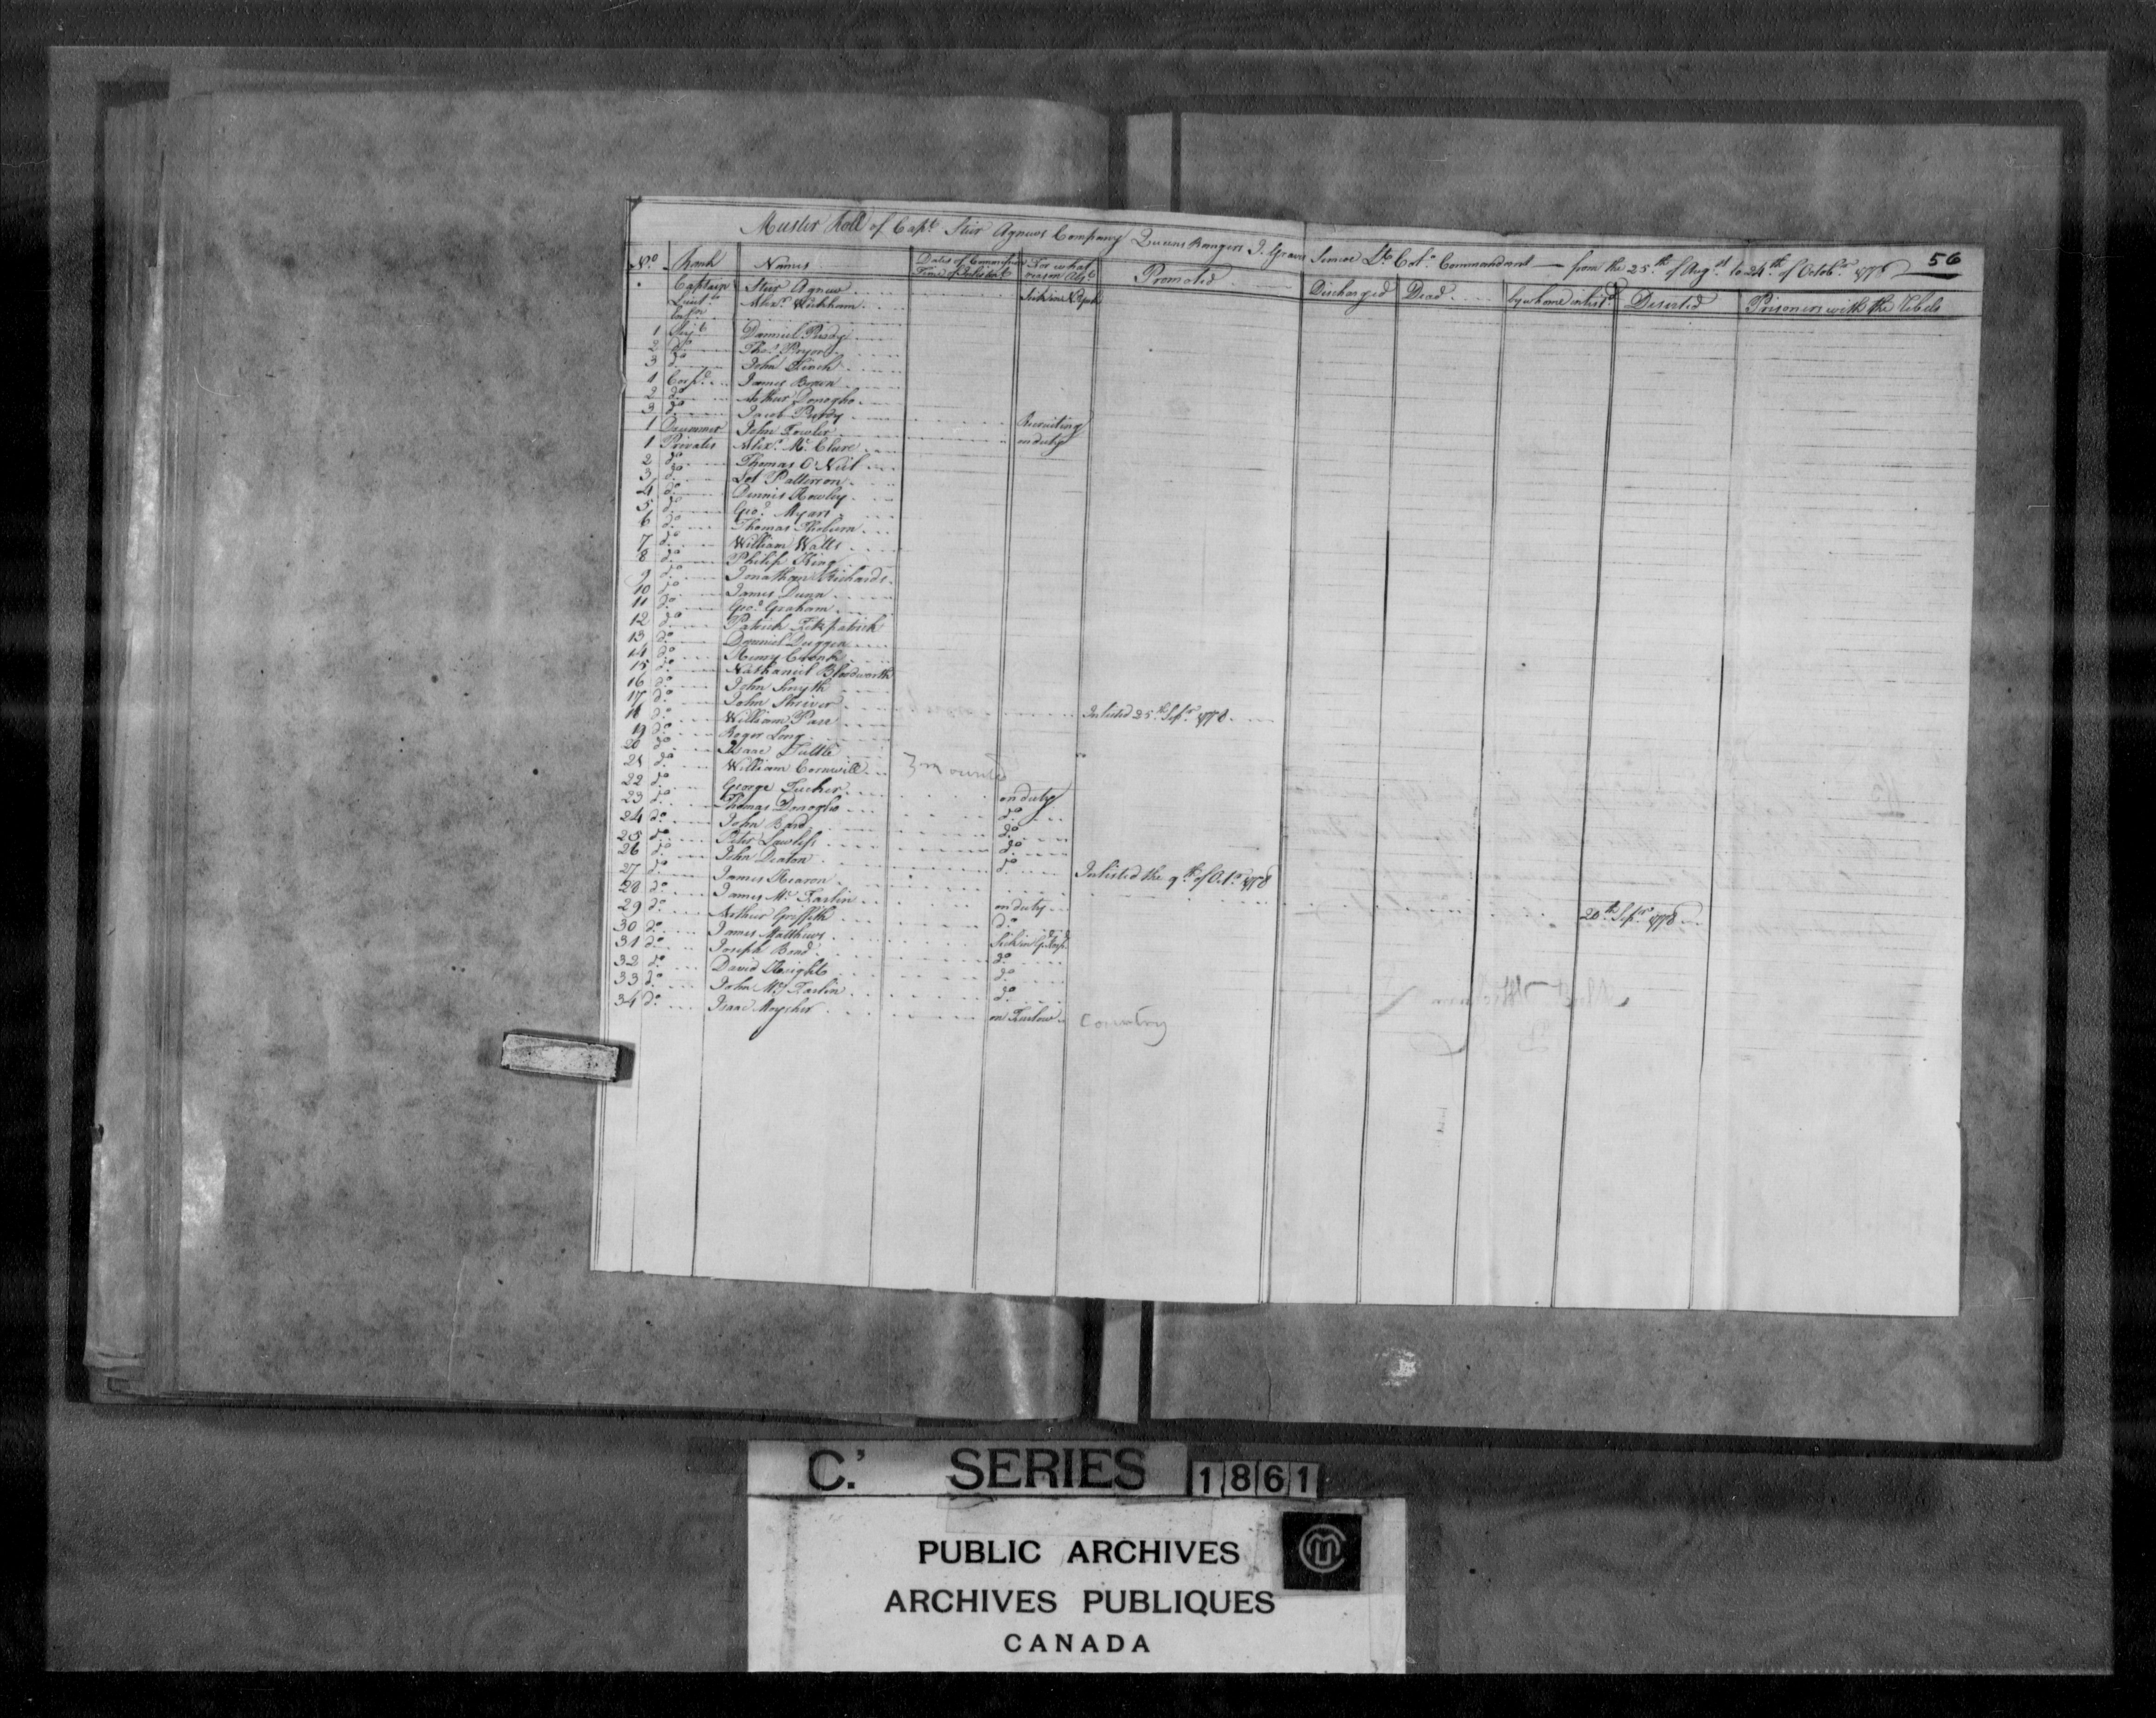 56
Muster Roll of Capt. Stair Agnews Company Queens Rangers J. Graves Simcoe Lt. Col.o Commandant — from the 25.th of Aug.st to 24.th of Octob.r 1778
N.o Rank Names Dates of Time of Inlistmt. For what reason Abs.t Promoted Discharged Dead by whome inlist.d Deserted Prisoners with the Rebels
Captain Stair Agnew
Lieut.t Alex.r Wickham
1 Serj.t Danniel Purdy
2 d.o Tho.s Pryor
3 d.o John Clinch
1 Corp.l James Brown
2 d.o Arthur Donogho
3 d.o Jacob Purdy Recruiting
1 Drummer John Fowler on duty
1 Privates Alex.r Mc. Clure
2 d.o Thomas O Niel
3 d.o Patterson
4 d.o Dennis Rowley
5 d.o Geo.e Myars
6 d.o Thomas
7 d.o William Watts
8 d.o Philip King
9 d.o Jonathan Richards
10 d.o James Dunn
11 d.o Geo.e Graham
12 d.o Patrick Fitzpatrick
13 d.o Danniel Duggen
14 d.o Henry
15 d.o Nathaniel Bloodworth
16 d.o John Smyth
17 d.o John Shriver
18 d.o William Parr Inlisted 25.th Sep.r 1778
19 d.o Roger Long
20 d.o Isaac Tuttle
21 d.o William Cornwill 3 mounted
22 d.o George Tucker on duty
23 d.o Thomas Donogho d.o
24 d.o John d.o
25 d.o Peter Lawless d.o
26 d.o John Deaton d.o
27 d.o James Hearon Inlisted the 9.th of Oct.r 1778
28 d.o James Mc. Farlin on duty 20.th Sep.r 1778
29 d.o Arthur Griffith d.o
30 d.o James Matthews
31 d.o Joseph d.o
32 d.o David Height d.o
33 d.o John Mc. Farlin d.o
34 d.o Isaac on Furlow Country
C.' SERIES 1861
PUBLIC ARCHIVES
ARCHIVES PUBLIQUES
CANADA